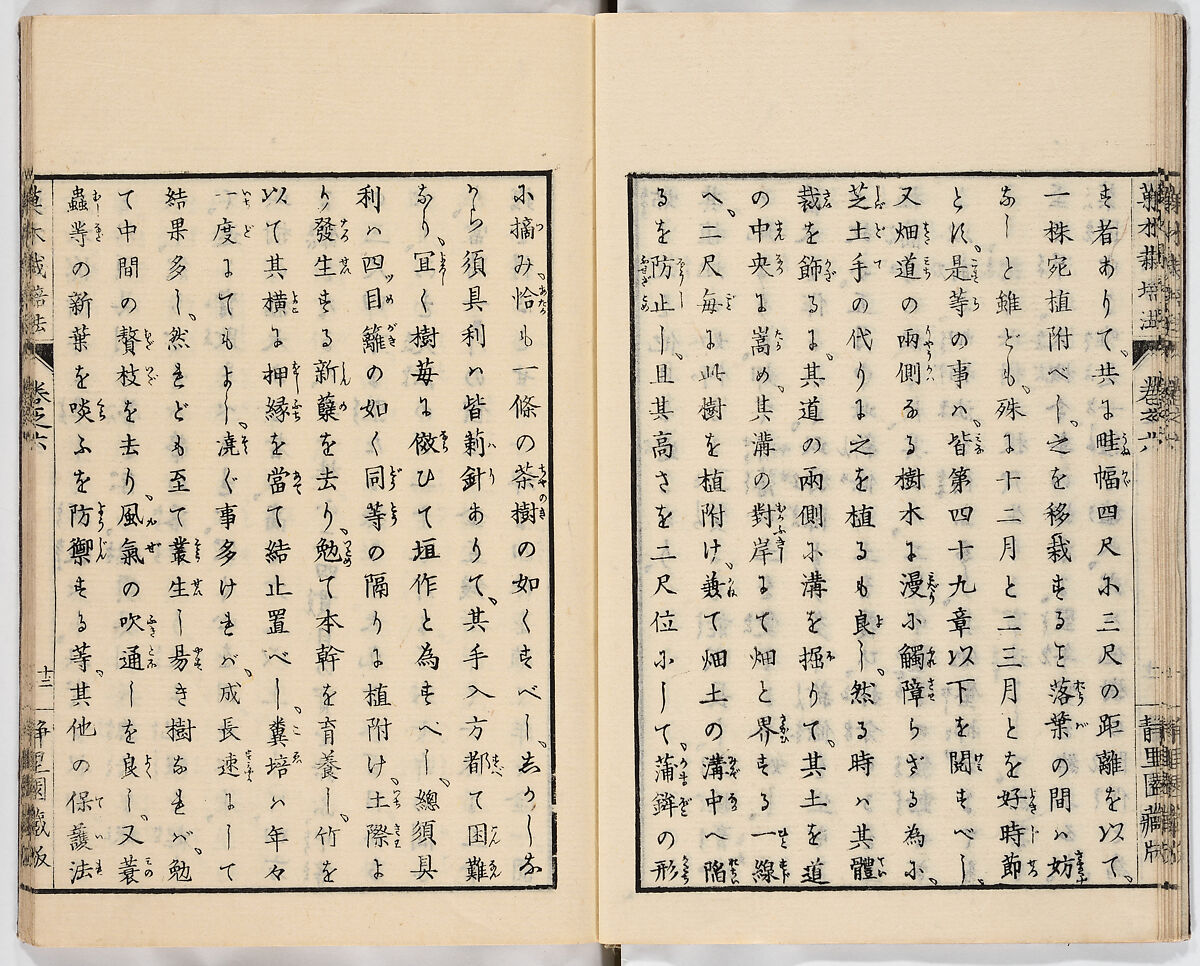 菓木栽培法 卷之六 十二 靜里園藏版
す者ありて、共に畦幅四尺に三尺の距離を以て、
一株宛植附べし、之を移栽するを落葉の間ハ妨
なしと雖ども、殊に十二月と二三月とを好時節
とす、是等の事ハ、皆第四十九章以下を閲すべし、
又畑道の兩側なる樹木に漫に觸障らざる為に、
芝土手の代りに之を植るも良し、然る時ハ其體
裁を飾るに、其道の兩側に溝を掘りて、其土を道
の中央に嵩め、其溝の對岸にて畑と界する一線
へ、二尺毎に此樹を植附け、兼て畑土の溝中へ陷
るを防止し、且其高さを二尺位にして、蒲鉾の形
に摘み、恰も一條の茶樹の如くすべし、志かしな
から須具利ハ皆莿針ありて、其手入方都て困難
なり、冝く樹莓に傚ひて垣作と為すべし、總須具
利ハ四ッ目籬の如く同等の隔りに植附け、土際よ
り發生する新蘖を去り、勉て本幹を育養し、竹を
以て其横に押縁を當て結止置べし、糞培ハ年々
一度にてもよし、澆ぐ事多けれバ、成長速にして
結果多し、然れども至て叢生し昜き樹なれバ、勉
て中間の贅枝を去り、風氣の吹通しを良し、又蓑
蟲等の新葉を啖ふを防禦する等、其他の保護法
菓木栽培法 卷之六 十三 靜里園藏版